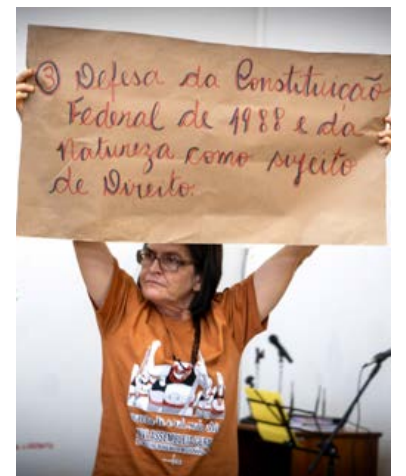 ③ Defesa da Constituição
Federal de 1988 e da
Natureza como sujeito
de Direito.